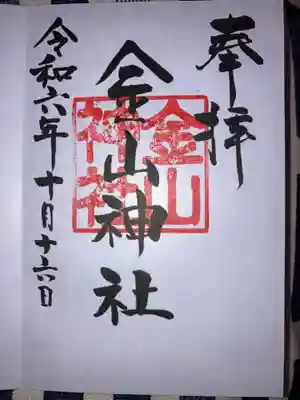 奉拝
金山神社
金山神社
令和六年十月十六日